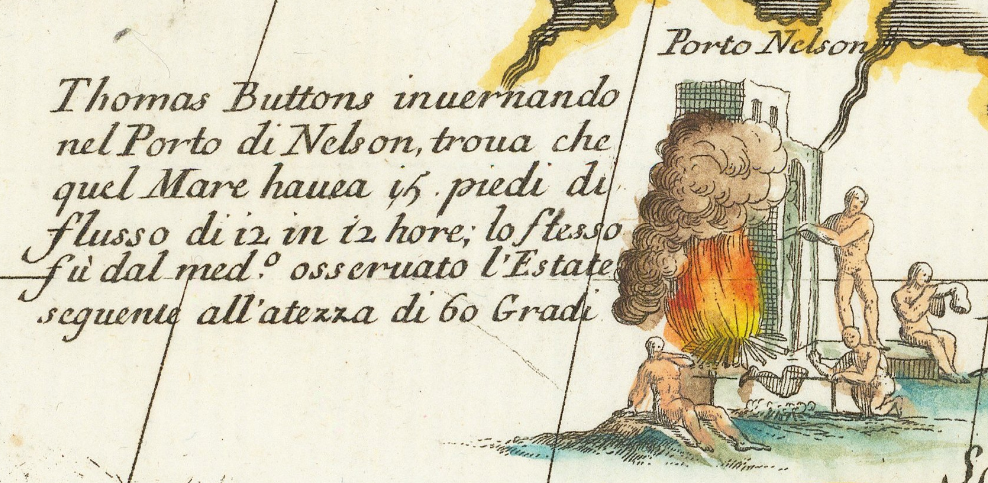 Porto Nelson
Thomas Buttons inuernando
nel Porto di Nelson, troua che
quel Mare hauea 15 piedi di
flusso di 12 in 12 hore; lo stesso
fù dal med.º osseruato l'Estate
sequente all'atezza di 60 Gradi